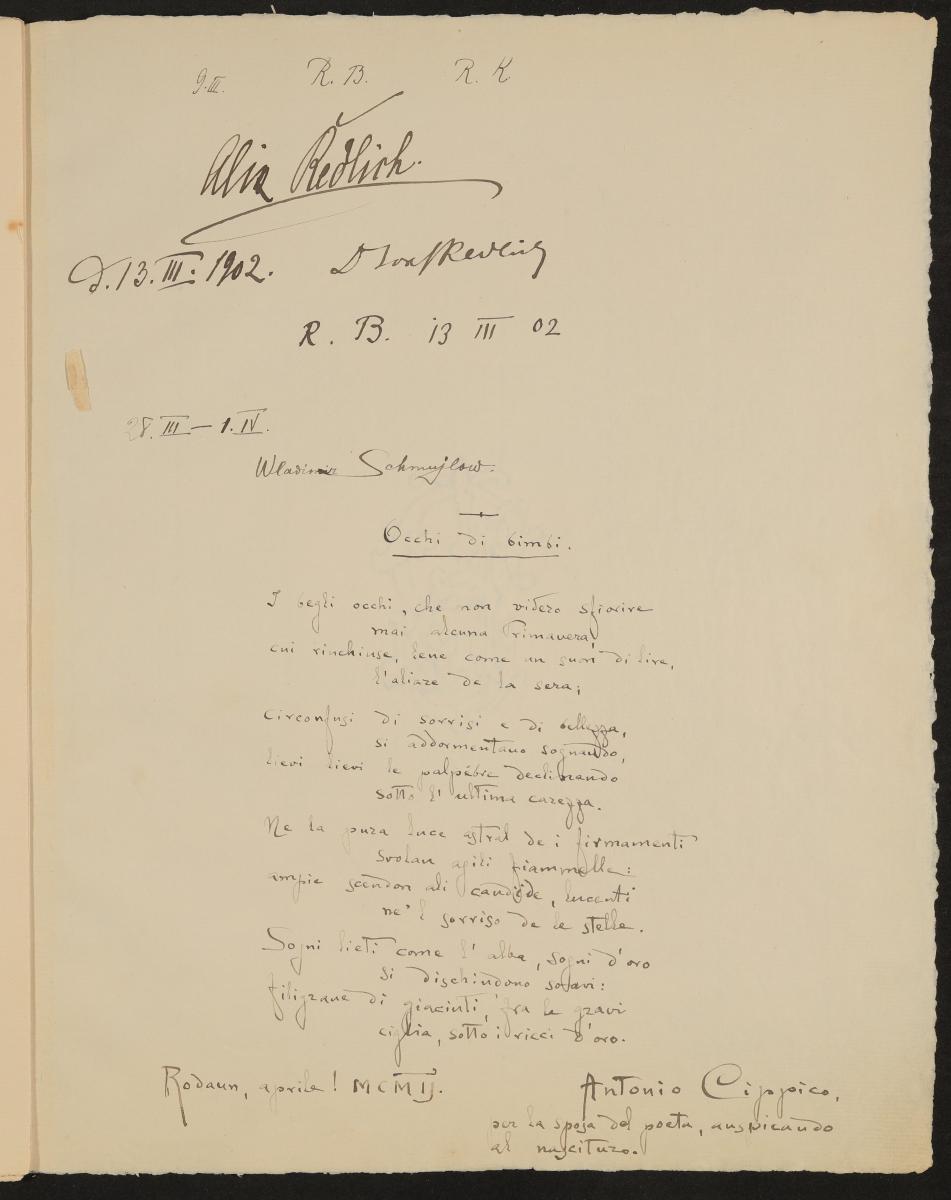 9.III. R. B. R. K.
Aliz Redlich.
d. 13. III. 1902. Dr Josef Redlich
R. B. 13 III 02
28. III — 1. IV.
Wladimir Schmujlow.
Occhi di bimbi.
I begli occhi, che non videro sfiorire
mai alcuna Primavera,
cui rinchiuse, lene come un suon di lire,
l'aliare de la sera;
circonfusi di sorrisi e di bellezza,
si addormentano sognando,
lievi lievi le palpébre declinando
sotto l'ultima carezza.
Ne la pura luce astral de i firmamenti
svolan agili fiammelle:
ampie scendon ali candide, lucenti
ne'l sorriso de le stelle.
Sogni lieti come l'alba, sogni d'oro
si dischindono soavi:
filigrane di giacinti, fra le gravi
ciglia, sotto i ricci d'oro.
Rodaun, aprile! MCMII. Antonio Cippico,
per la sposa del poeta, auspicando
al nascituro.